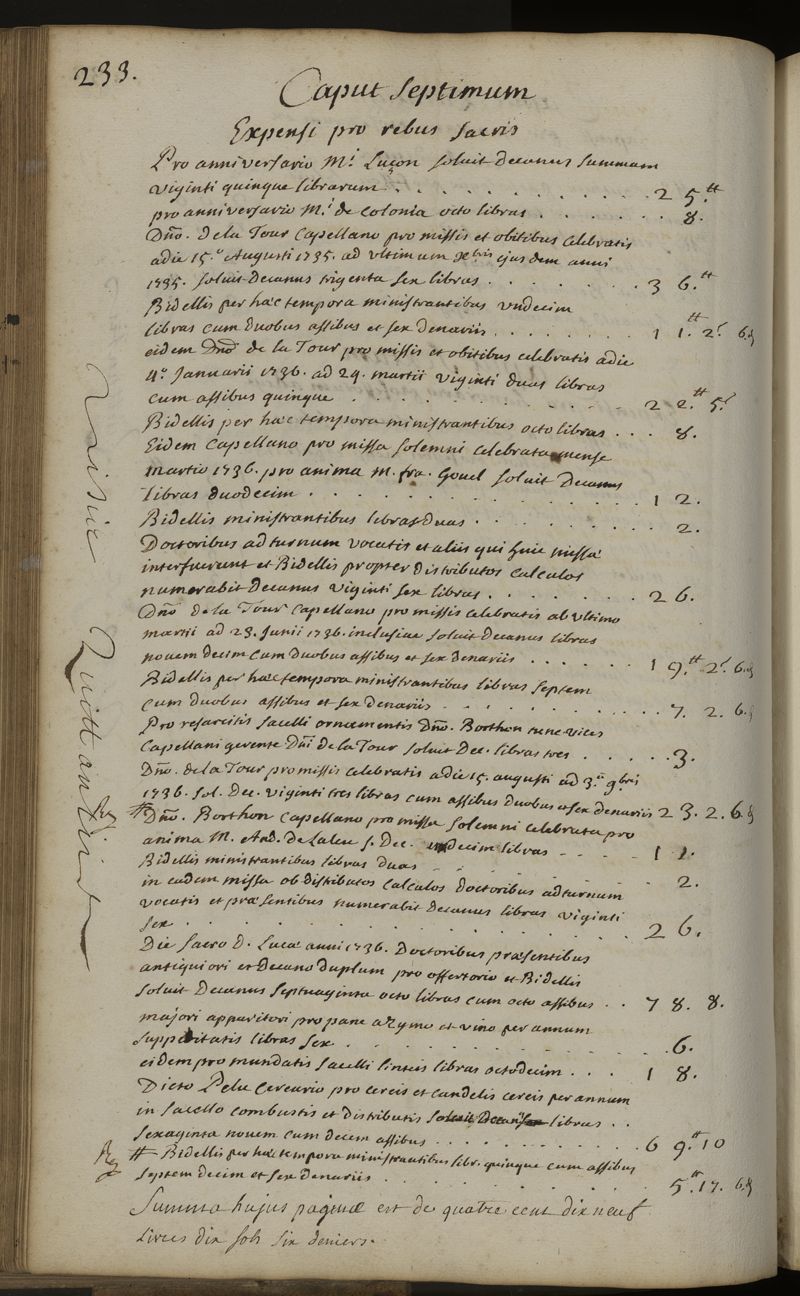 233.
Caput Septimum
Expensi pro rebus sacris
Pro anniversario Mi. Luçon soluit decanus summam
viginti quinque librarum . . . . . . . . . . . 2 5.tt
pro anniversario Mi. de Colonia octo libras . . . . . . 8.
Dno. de la Tour Capellano pro missis et obitibus celebratis
a die 15.a Augusti 1735. ad ultimam xbris ejusdem anni
1735. soluit decanus trigenta sex libras . . . . . . . 3 6.tt
Bidellis per hæc tempora ministrantibus undecim
libras cum duobus assibus et sex denariis . . . . . . . 1 1.tt 2.s 6.d
eidem Dno de la Tour pro missis et obitibus celebratis a die
4.a Januarii 1736. ad 29. martii viginti duas libras
cum assibus quinque . . . . . . . . . . . . 2 2.tt 5.s
Bidellis per hæc tempora ministrantibus octo libras . . . 8.
Eidem Capellano pro missa solemni celebrata mense
Martio 1736. pro anima M. fra. Gouel soluit Decanus
libras duodecim . . . . . . . . . . . . . 1 2.
Bidellis ministrantibus libras duas . . . . . . . . 2.
Doctoribus ad turnum vocatis et aliis qui huic missæ
interfuerunt et Bidellis propter distributos calculos
numerabit Decanus viginti sex libras . . . . . . . 2 6.
Dno de la Tour Capellano pro missis celebratis ab ultimo
martii ad 23. Junii 1736. inclusive soluit decanus libras
novem decim cum duobus assibus et sex denariis . . . . . . 1 9.tt 2.s 6.d
Bidellis per hæc tempora ministrantibus libras septem
cum duobus assibus et sex denariis . . . . . . . . . 7. 2. 6.d
Pro resarcitis sacelli ornamentis Dno. Borthon tunc vices
Capellani gerente Dni de la Tour soluit Dec. libras tres . . . . . 3.
Dno. de la Tour pro missis celebratis a die 15. augusti ad 3.am 9bris
1736. sol. Dec. viginti tres libras cum assibus duobus et sex denariis 2 3. 2. 6.d
# Dno. Borthon Capellano pro missa solemni celebrata pro
anima M. And. de Laleu s. Dec. undecim libras . . . . 1 1.
Bidellis ministrantibus libras duas . . . . . . 2.
in eadem missa ob distributos calculos doctoribus ad turnum
vocatis et præsentibus numerabit decanus libras viginti
sex . . . . . . . . . . . . . . . 2 6.
Die sacro D. Lucæ anni 1736. Doctoribus præsentibus
antiquiori et Decano duplum pro offertorio et Bidellis
soluit Decanus septuaginta octo libras cum octo assibus . . 7 8. 8.
majori apparitori pro pane azymo et vino per annum
suppeditatis libras sex . . . . . . . . . . . . 6.
eidem pro mundatis sacelli linteis libras octodecim . . . 1 8.
Dicto Pelu Cereario pro cereis et candelis cereis per annum
in sacello combustis et distributis libras . .
sexaginta novem cum decem assibus . . . . . . . . . 6 9.tt 10
# Bidellis per hæc tempora ministrantibus libr. quinque cum assibus
septem decim et sex denariis . . . . . . . . . 5.tt 17. 6.d
Summa hujus paginæ est de quatre cent dix neuf
livres dix sols six deniers.